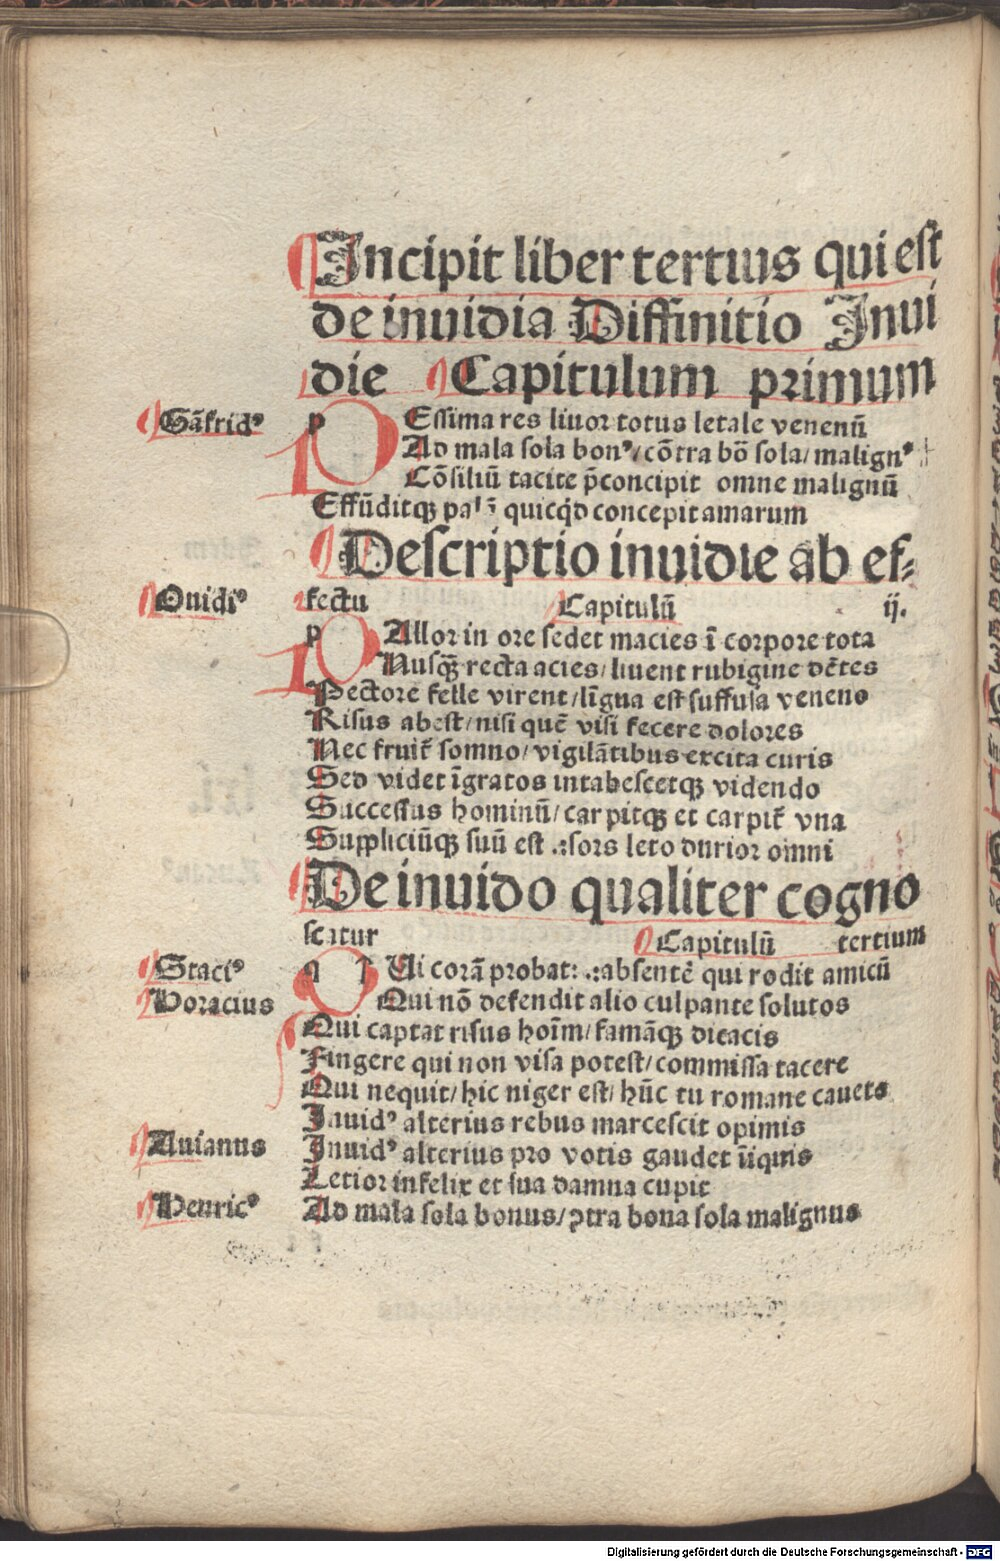 Incipit liber tertius qui est
de inuidia Diffinitio Inui
die Capitulum primum
Gãfridꝰ
pEssima res liuor totus letale venenũ
Ad mala sola bonꝰ/ cõtra bõ sola/ malignꝰ
Cõsiliũ tacite p̄concipit omne malignũ
Effũditqꝫ quicq̇d concepit amarum
Descriptio inuidie ab ef⸗
fectu Capitulũ ij.
Ouidiꝰ
pAllor in ore sedet macies ĩ corpore tota
Nusqꝫ̃ recta acies/ liuent rubigine dẽtes
Pectore felle virent/ lĩgua est suffusa veneno
Risus abest/ nisi quẽ visi fecere dolores
Nec fruit̃ somno/ vigilãtibus excita curis
Sed videt ĩgratos intabescetqꝫ videndo
Successus hominũ/ carpitqꝫ et carpit̃ vna
Suppliciũqꝫ suũ est sors leto durior omni
De inuido qualiter cogno
scatur Capitulũ tertium
Staciꝰ
qUi corã probat: absentẽ qui rodit amicũ
Horacius
Qui nõ defendit alio culpante solutos
Qui captat risus hoĩm/ famãqꝫ dicacis
Fingere qui non visa potest/ commissa tacere
Qui nequit/ hic niger est/ hũc tu romane caueto
Inuidꝰ alterius rebus marcescit opimis
Auianus
Inuidꝰ alterius pro votis gaudet ĩiquis
Letior infelix et sua damna cupit
Henricꝰ
Ad mala sola bonus/ ꝯtra bona sola malignus
Digitalisierung gefördert durch die Deutsche Forschungsgemeinschaft - DFG